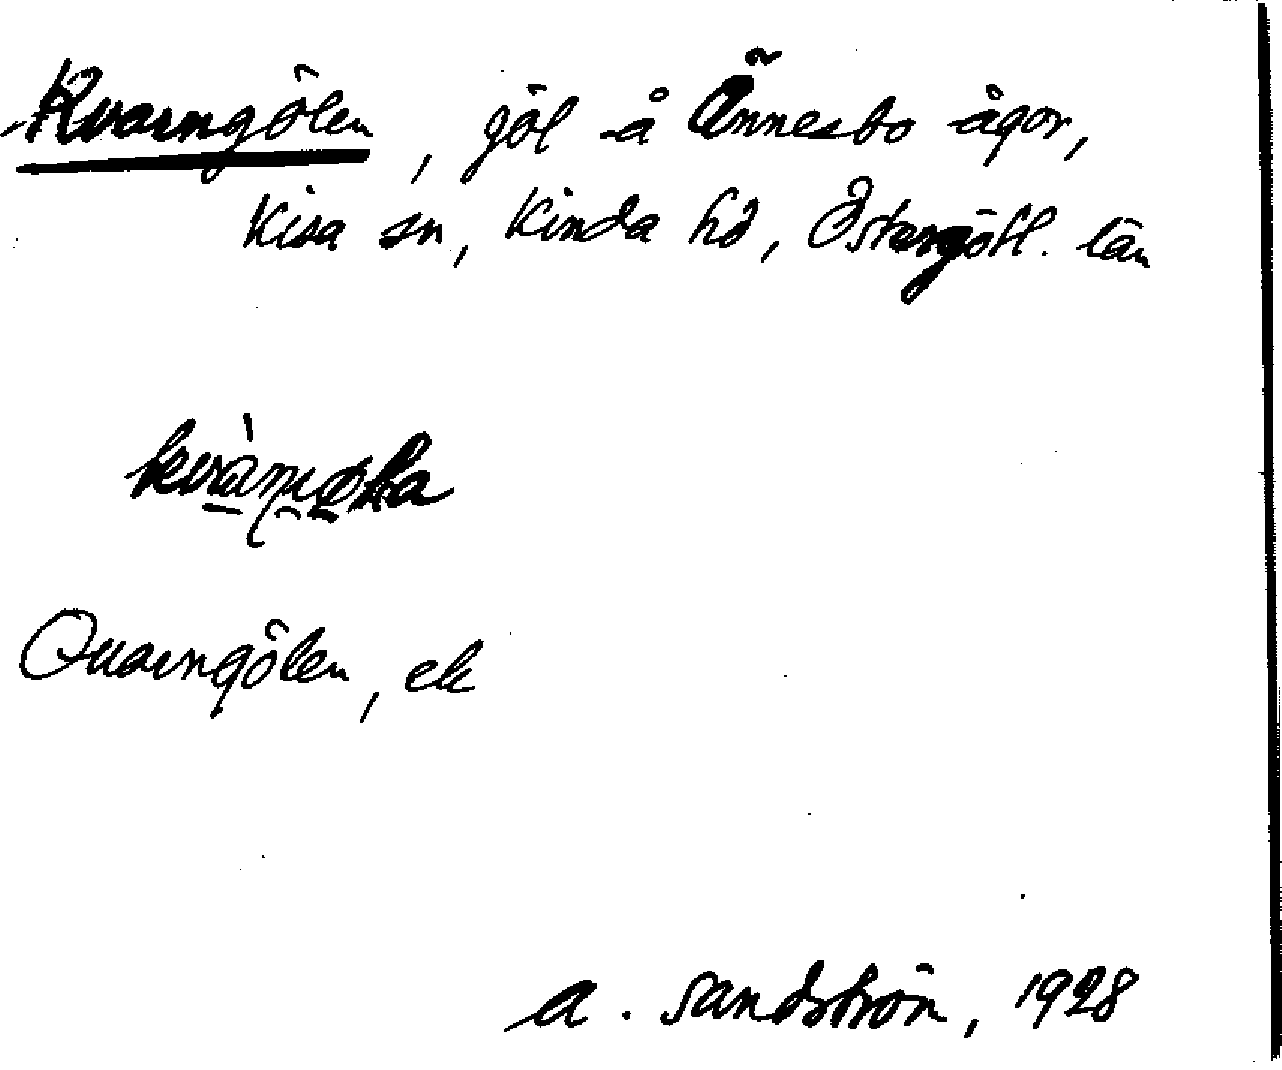 Kvarngölen, göl å Ännesbo ägor,
Kisa sn, Kinda hd, Östergötl. län
Quarngölen, ek
A. Sandström, 1928